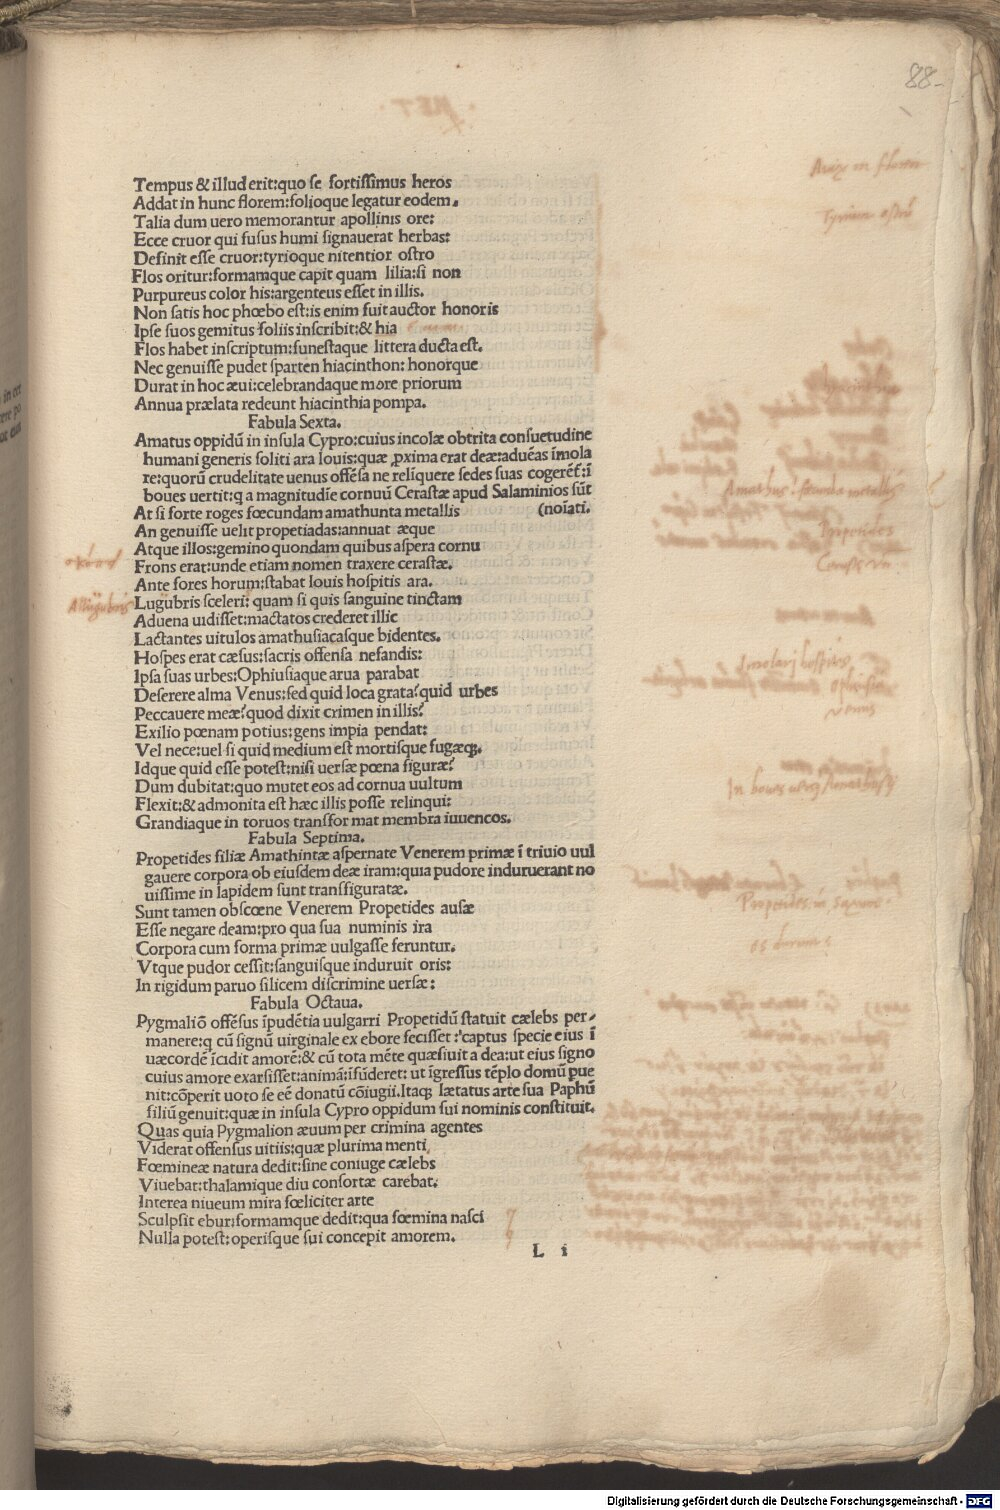 88
Tempus & illud erit:quo se fortissimus heros
Addat in hunc florem:folioque legatur eodem.
Talia dum uero memorantur apollinis ore:
Ecce cruor qui fusus humi signauerat herbas:
Definit esse cruor:tyrioque nitentior ostro
Flos oritur:formamque capit quam lilia:si non
Purpureus color his:argenteus esset in illis.
Non satis hoc phœbo est:is enim fuit auctor honoris
Ipse suos gemitus foliis inscribit:& hia
Flos habet inscriptum:funestaque littera ducta est.
Nec genuisse pudet sparten hiacinthon: honorque
Durat in hoc æui:celebrandaque more priorum
Annua prælata redeunt hiacinthia pompa.
Fabula Sexta.
Amatus oppidū in insula Cypro:cuius incolæ obtrita consuetudine
humani generis soliti ara Iouis:quæ ꝓxima erat deæ:aduēas īmola
re:quorū crudelitate uenus offēsa ne relīquere sedes suas cogeret̄:ī
boues uertit:q a magnitudīe cornuū Cerastæ apud Salaminios sūt
At si forte roges fœcundam amathunta metallis (noīati.
An genuisse uelit propetiadas:annuat æque
Atque illos:gemino quondam quibus aspera cornu
Frons erat:unde etiam nomen traxere cerastæ.
Ante fores horum:stabat Iouis hospitis ara.
Lugubris sceleri: quam si quis sanguine tinctam
Aduena uidisset:mactatos crederet illic
Lactantes uitulos amathusiacasque bidentes.
Hospes erat cæsus:sacris offensa nefandis:
Ipsa suas urbes:Ophiusiaque arua parabat
Deserere alma Venus:sed quid loca grata?quid urbes
Peccauere meæ?quod dixit crimen in illis?
Exilio pœnam potius:gens impia pendat:
Vel nece:uel si quid medium est mortisque fugæqꝫ.
Idque quid esse potest:nisi uersæ pœna figuræ?
Dum dubitat:quo mutet eos ad cornua uultum
Flexit:& admonita est hæc illis posse relinqui:
Grandiaque in toruos transfor mat membra iuuencos.
Fabula Septima.
Propetides filiæ Amathintæ aspernate Venerem primæ ī triuio uul
gauere corpora ob eiusdem deæ iram:quia pudore induruerant no
uissime in lapidem sunt transfiguratæ.
Sunt tamen obscœne Venerem Propetides ausæ
Esse negare deam:pro qua sua numinis ira
Corpora cum forma primæ uulgasse feruntur.
Vtque pudor cessit:sanguisque induruit oris:
In rigidum paruo silicem discrimine uersæ:
Fabula Octaua.
Pygmaliō offēsus īpudētia uulgarri Propetidū statuit cælebs per-
manere:q cū signū uirginale ex ebore fecisset :captus specie eius ī
uæcordē īcidit amorē:& cū tota mēte quæsiuit a dea:ut eius signo
cuius amore exarsisset:animā:īfūderet: ut īgressus tēplo domū pue
nit:cōperit uoto se eē donatū cōiugii.Itaqꝫ lætatus arte sua Paphū
filiū genuit:quæ in insula Cypro oppidum sui nominis constituit.
Quas quia Pygmalion æuum per crimina agentes
Viderat offensus uitiis:quæ plurima menti
Fœmineæ natura dedit:sine coniuge cælebs
Viuebat:thalamique diu consortæ carebat.
Interea niueum mira fœliciter arte
Sculpsit ebur:formamque dedit:qua fœmina nasci
Nulla potest:operisque sui concepit amorem.
L i
Tyrium ostrū
Amathus
Propetides
Cerastæ
Venus
Propetides in saxum
os durum
Digitalisierung gefördert durch die Deutsche Forschungsgemeinschaft - DFG